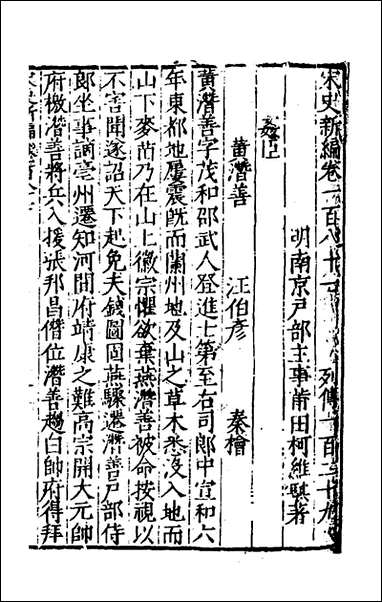 宋史新編卷一百八十七　列傳一百二十九
明南京戶部主事莆田柯維騏著
姦臣
黃潛善　汪伯彥　秦檜
黃潛善字茂和邵武人登進士第至右司郎中宣和六
年東都地屢震旣而蘭州地及山之草木悉沒入地而
山下麥苗乃在山上徽宗懼欲棄燕潛善被命按視以
不害聞遂詔天下起免夫錢圖固燕驟遷潛善戶部侍
郎坐事謫亳州遷知河間府靖康之難高宗開大元帥
府檄潛善將兵入援張邦昌僭位潛善趨白帥府得拜